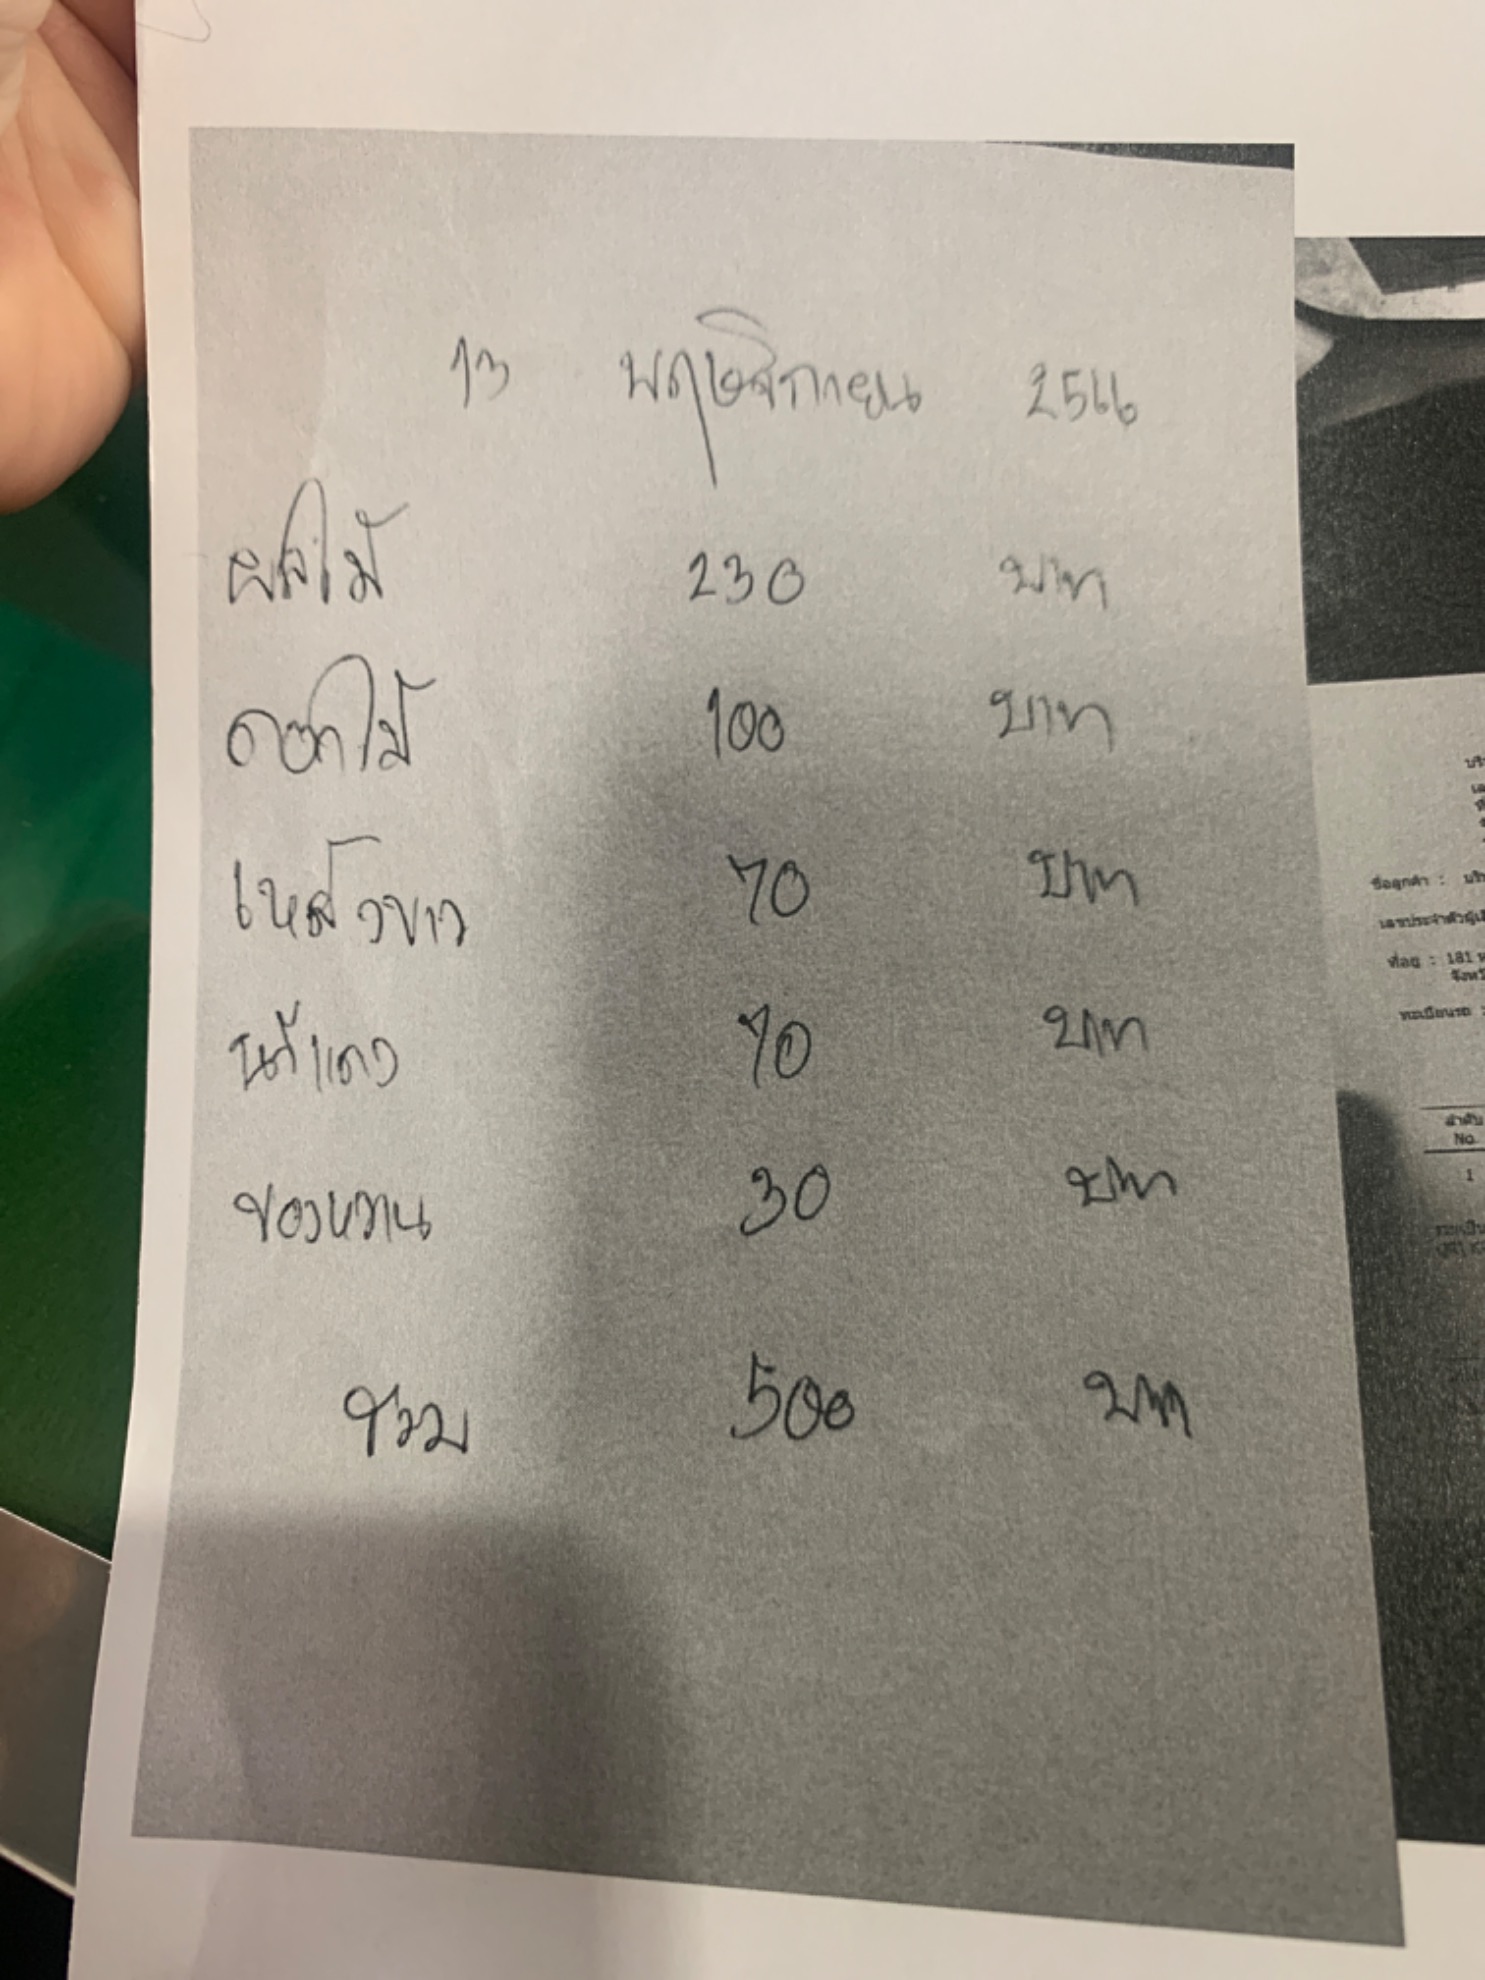 13 พฤษจิกายน 2566
ผลไม้ 230 บาท
ดอกไม้ 100 บาท
เหล้าขาว 70 บาท
น้ำแดง 70 บาท
ของหวาน 30 บาท
รวม 500 บาท
ชื่อลูกค้า :
เลขประจำตัวผู้เสี
ที่อยู่ : 181
จังหวั
ทะเบียนรถ :
ลำดับ
No.
1